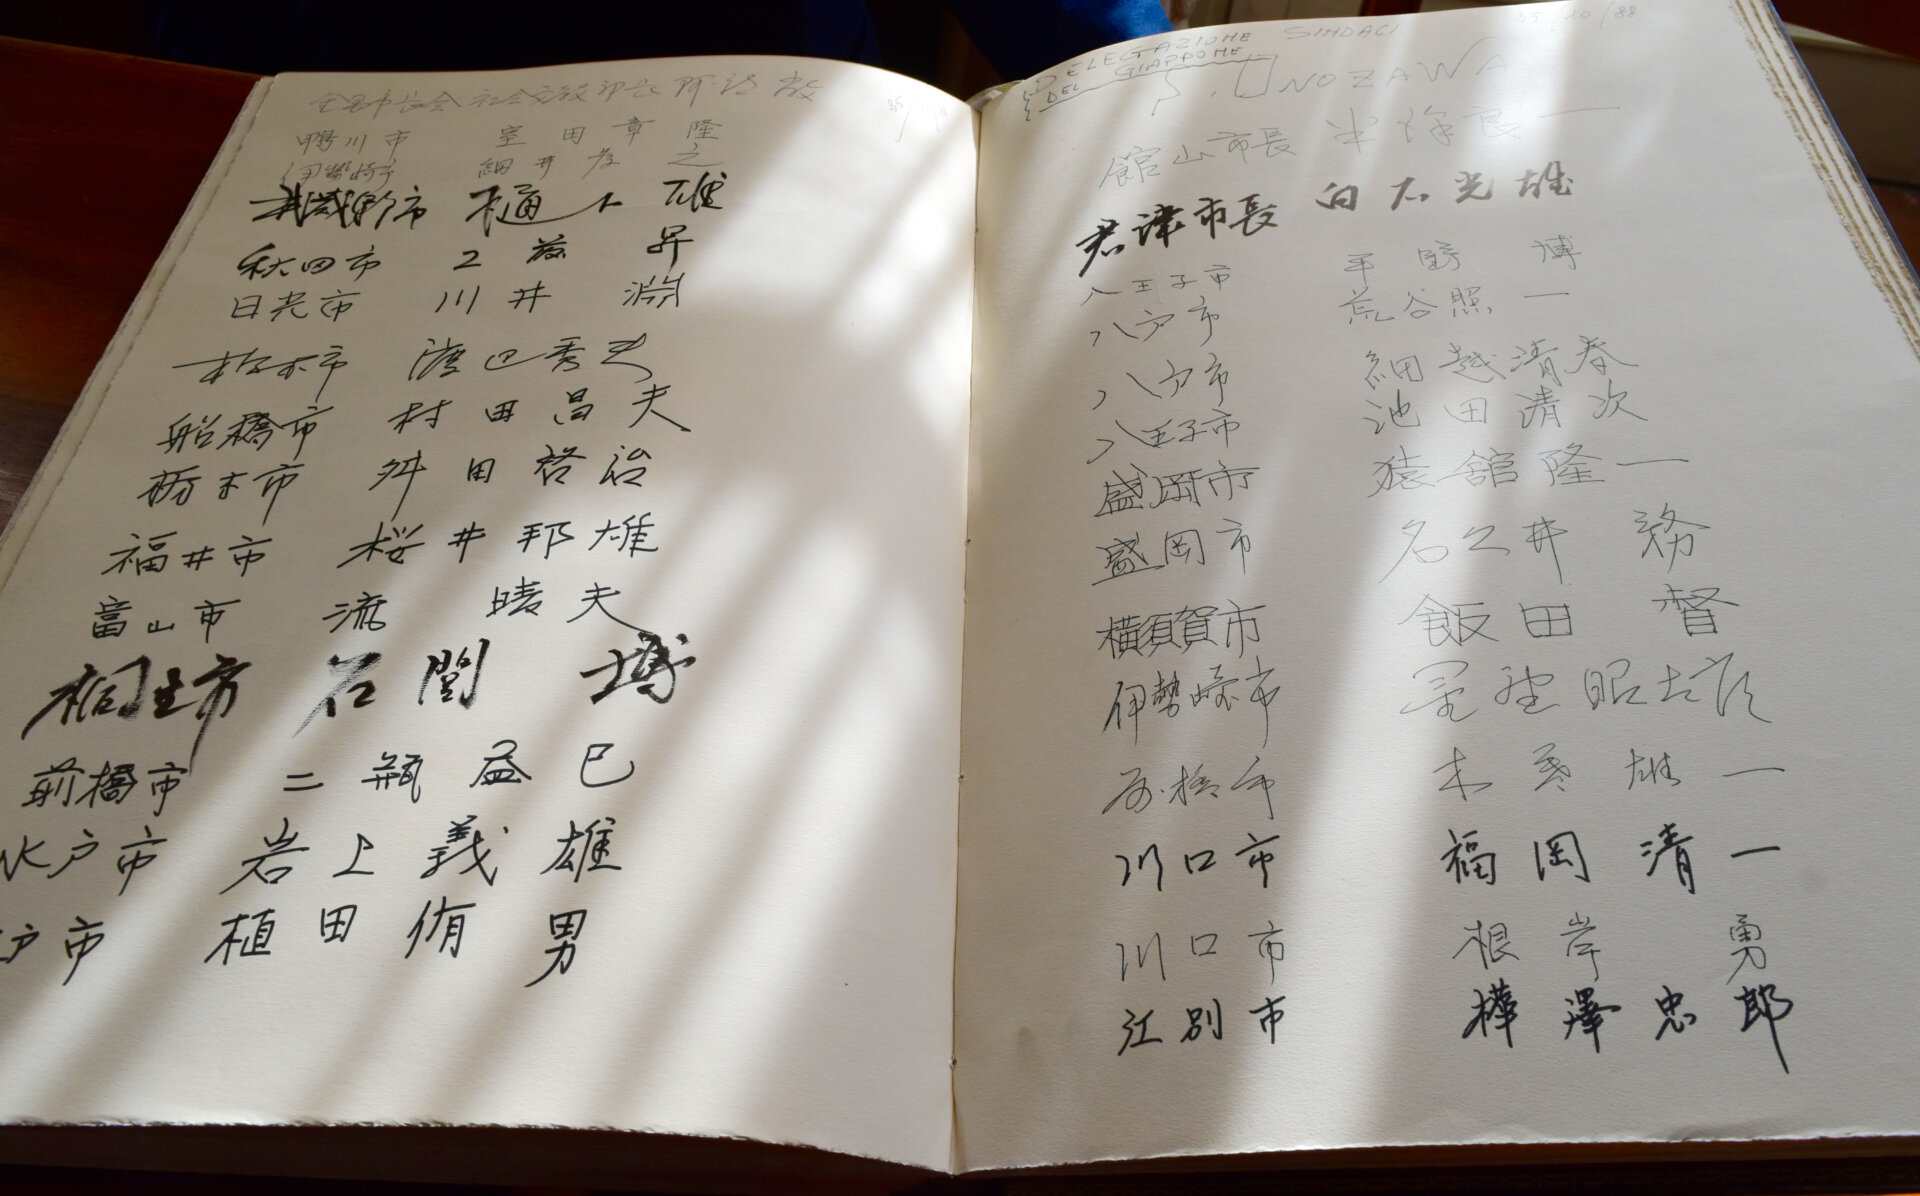 全国市長会 社会文教部長
鴨川市 室田章隆
伊勢崎市 細井孝之
武蔵野市 樋
秋田市 工藤 昇
日光市 川井 淵
栃木市 渡辺秀夫
船橋市 村田昌夫
栃木市 舛田啓治
福井市 桜井邦雄
富山市 流 晴夫
桐生市 石関 博
前橋市 二瓶益巳
水戸市 岩上義雄
戸市 植田侑男
DELEGAZIONE SINDACI 25/10/88
DEL GIAPPONE
S. UNOZAWA
館山市長 半澤良一
君津市長 白石光雄
八王子市 平野 博
八戸市 荒谷照一
八戸市 細越清春
八王子市 池田清次
盛岡市 猿舘隆一
盛岡市 名久井 務
横須賀市 飯田 督
伊勢崎市 星野
市 木 雄一
川口市 福岡清一
川口市 根岸 勇
江別市 樺澤忠郎